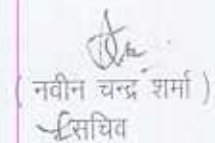 ( नवीन चन्द्र शर्मा )
सचिव